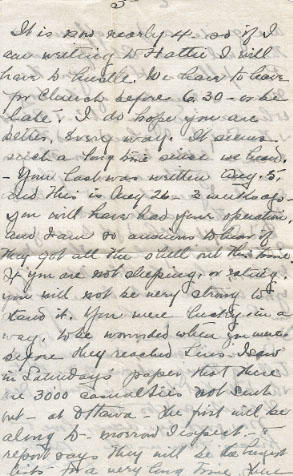 5
It is now nearly 4 - so if I
am writing to Hattie I will
have to hustle. We have to leave
for Church before 6.30 - or be
late. I do hope you are
better, every way. It seems
such a long time since we heard.
- Your last was written Aug. 5-
and this is Aug 26 - 3 weeks ago -
you will have had your operation,
and I am so anxious to hear if
they got all the shell out this time.
If you are not sleeping, or eating,
you will not be very strong to
stand it. You were lucky, in a
way, to be wounded when you were -
before they reached Lens. I saw
in Saturdays paper that there
are 3000 casualties not sent
out - at Ottawa - the first will be
along to-morrow I expect -
report says they will be the largest
lists for a very long time.